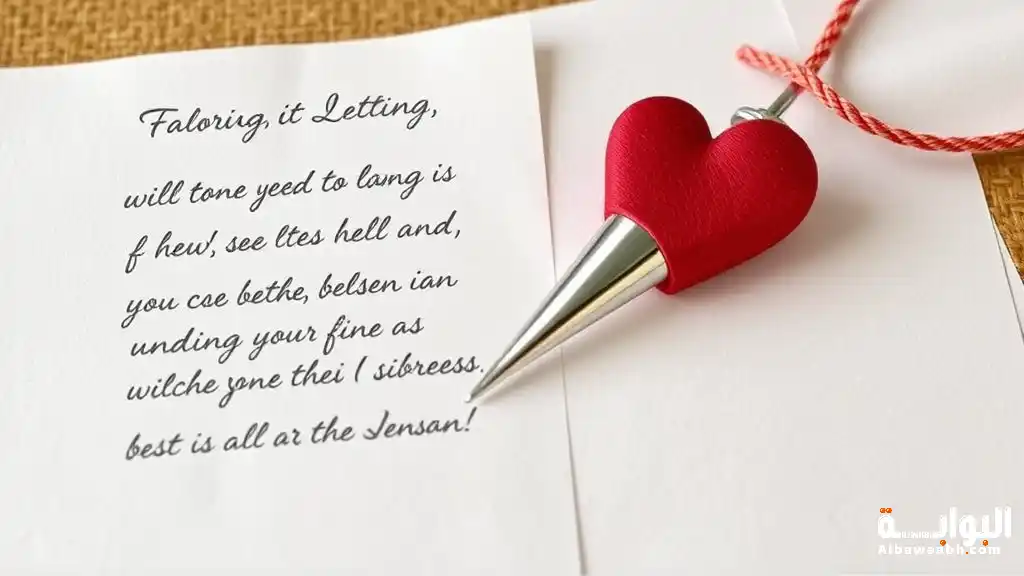 Faloriug, it Letting,
will tone yeed to lawng is
f hew!, see ltes hell and,
you cse bethe, belsen ian
unding your fine as
wilche yone thei ( sibreess.
best is all ar the Jensan!
البوابـــة
Albawaabh.com